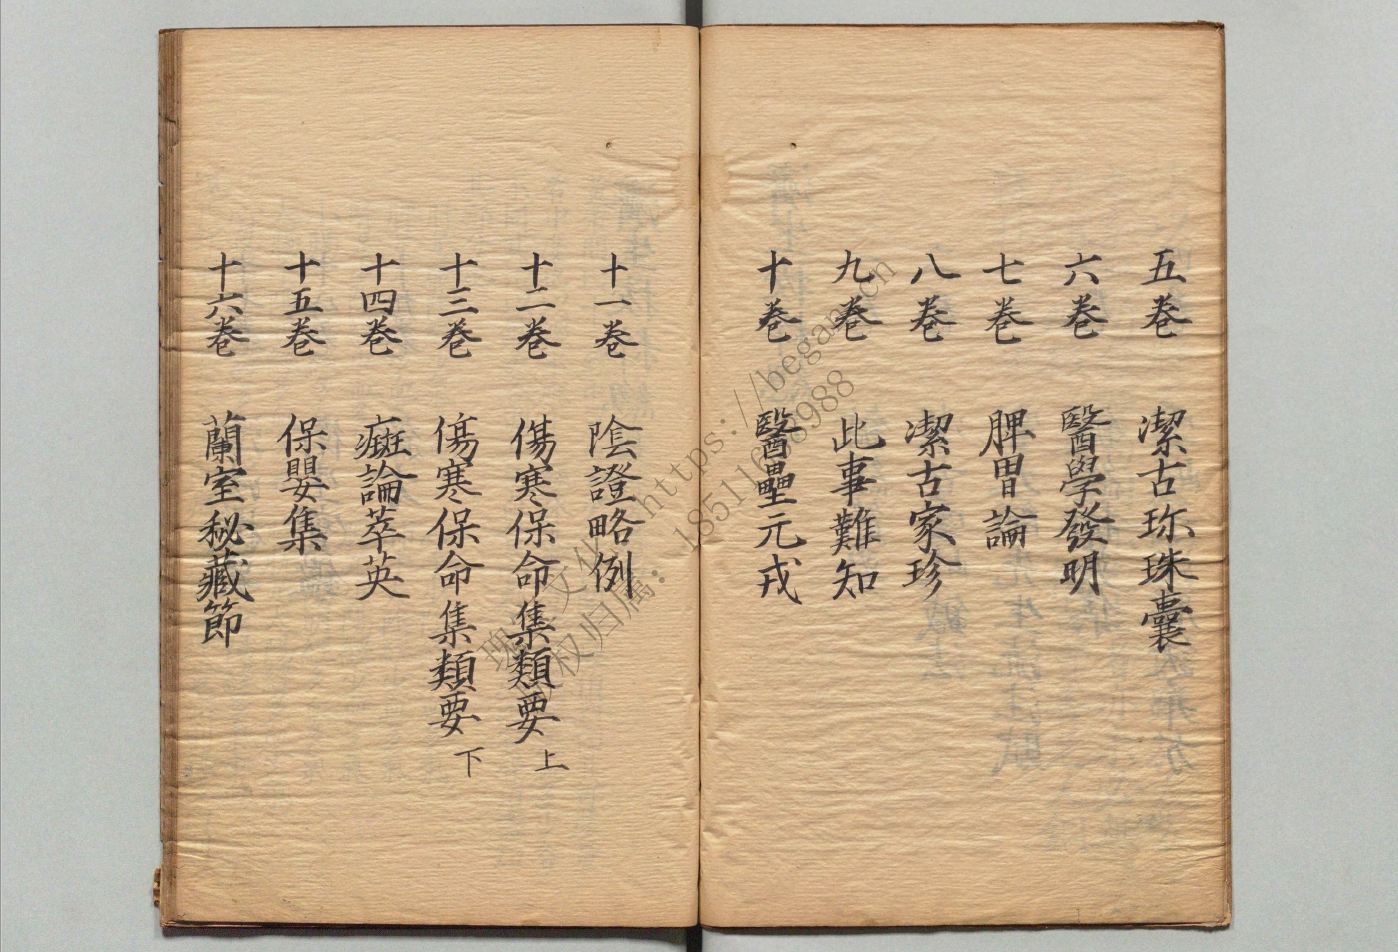 五卷 潔古珎珠囊
六卷 醫學發明
七卷 脾胃論
八卷 潔古家珍
九卷 此事難知
十卷 醫壘元戎
十一卷 陰證略例
十二卷 傷寒保命集類要 上
十三卷 傷寒保命集類要 下
十四卷 癍論萃英
十五卷 保嬰集
十六卷 蘭室秘藏節